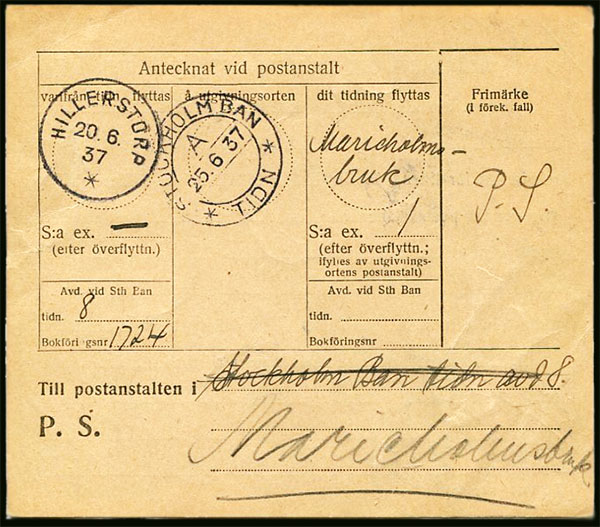 Antecknat vid postanstalt
varifrån tidn. flyttas
å utgivningsorten
dit tidning flyttas
Frimärke
(i förek. fall)
HILLERSTORP
20.6.
37
*
STOCKHOLM BAN * TIDN *
A
25.6.37
Maricholms-
bruk
P.S.
S:a ex. —
(efter överflyttn.)
S:a ex. 1
(efter överflyttn.;
ifylles av utgivnings-
ortens postanstalt)
Avd. vid Sth Ban
tidn. 8
Bokföringsnr 1724
Avd. vid Sth Ban
tidn.
Bokföringsnr
Till postanstalten i Stockholm Ban tidn avd 8.
P. S.
Maricholmsbruk